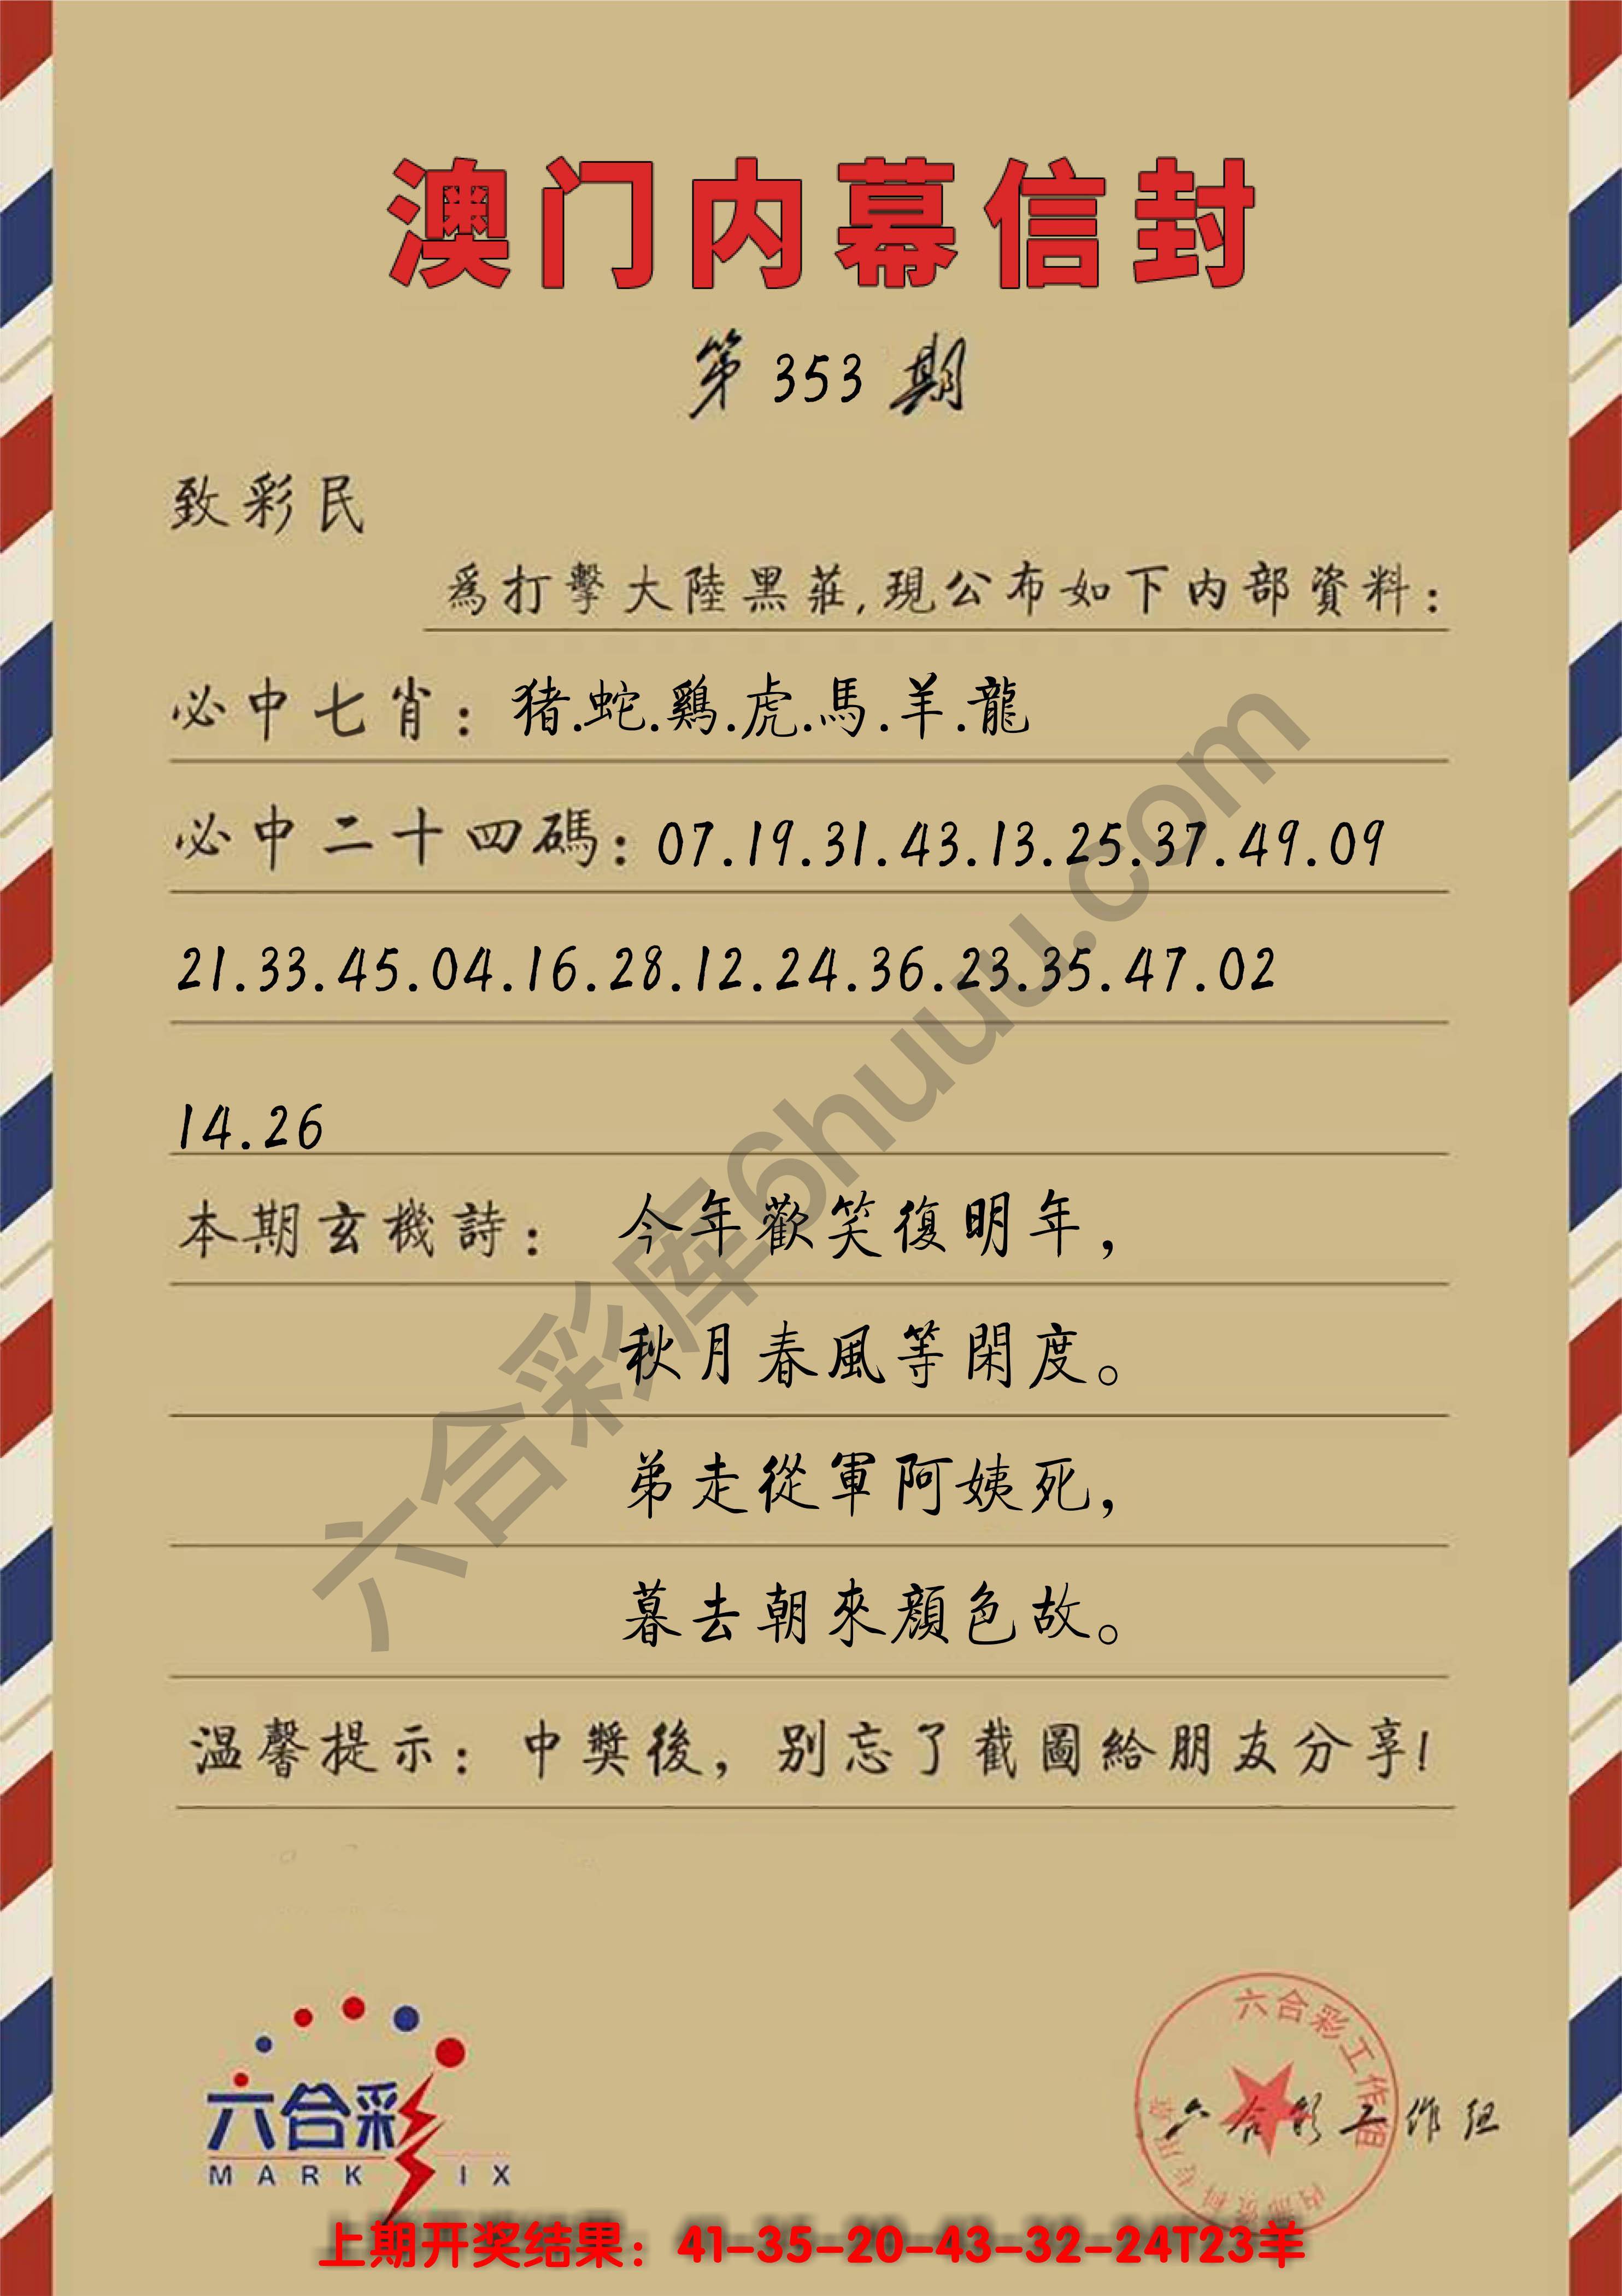 澳门内幕信封
第 353 期
致彩民
爲打擊大陸黑莊,現公布如下内部資料:
必中七肖: 猪.蛇.鷄.虎.馬.羊.龍
必中二十四碼: 07.19.31.43.13.25.37.49.09
21.33.45.04.16.28.12.24.36.23.35.47.02
14.26
本期玄機詩: 今年歡笑復明年,
秋月春風等閑度。
弟走從軍阿姨死,
暮去朝來顔色故。
温馨提示: 中獎後, 别忘了截圖給朋友分享!
六合彩库6huuu.com
六合彩
MARK SIX
六合彩工作组
六合彩工作组
上期开奖结果: 41-35-20-43-32-24T23羊